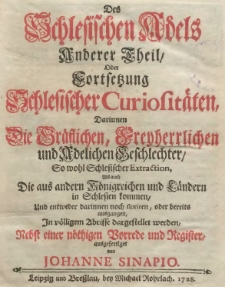 Des
Schlesischen Adels
Anderer Theil/
Oder
Fortsetzung
Schlesischer Curiositäten,
Darinnen
Die Gräflichen, Freyherrlichen
und Adelichen Geschlechter/
So wohl Schlesischer Extraction,
Als auch
Die aus andern Königreichen und Ländern
in Schlesien kommen/
Und entweder darinnen noch floriren, oder bereits
ausgangen,
In völligem Abrisse dargestellet werden,
Nebst einer nöthigen Vorrede und Register,
ausgefertiget
von
JOHANNE SINAPIO.
Leipzig und Breßlau, bey Michael Rohrlach. 1728.